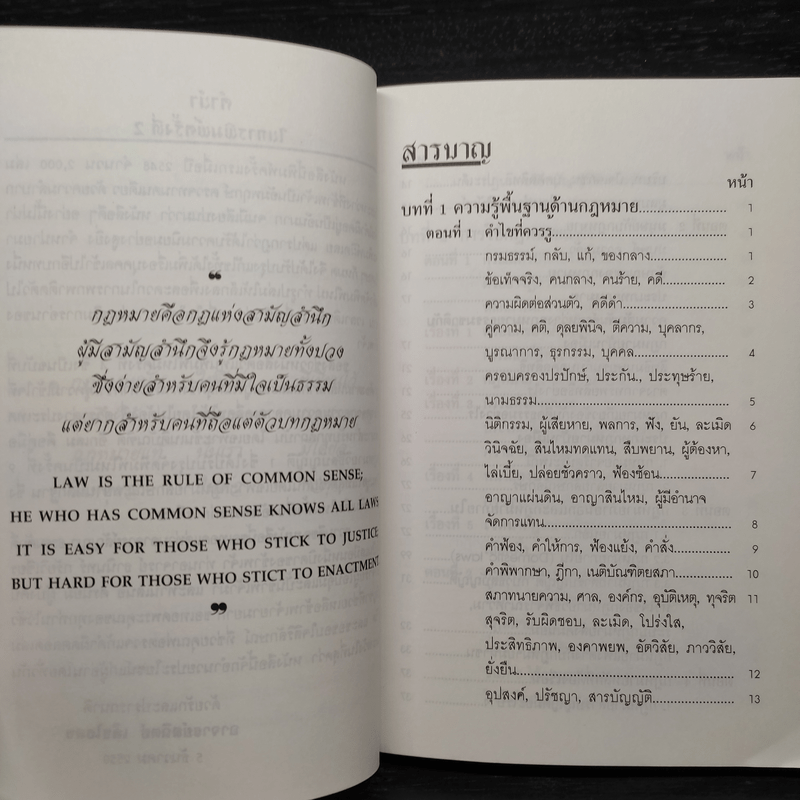 ❝
กฎหมายคือกฎแห่งสามัญสำนึก
ผู้มีสามัญสำนึกจึงรู้กฎหมายทั้งปวง
ซึ่งง่ายสำหรับคนที่มีใจเป็นธรรม
แต่ยากสำหรับคนที่ถือแต่ตัวบทกฎหมาย
LAW IS THE RULE OF COMMON SENSE;
HE WHO HAS COMMON SENSE KNOWS ALL LAWS
IT IS EASY FOR THOSE WHO STICK TO JUSTICE
BUT HARD FOR THOSE WHO STICT TO ENACTMENT
❞
สารบาญ
หน้า
บทที่ 1 ความรู้พื้นฐานด้านกฎหมาย.......................... 1
ตอนที่ 1 คำไขที่ควรรู้.......................................... 1
กรมธรรม์, กลับ, แก้, ของกลาง.......................... 1
ข้อเท็จจริง, คนกลาง, คนร้าย, คดี...................... 2
ความผิดต่อส่วนตัว, คดีดำ................................ 3
คู่ความ, คติ, ดุลยพินิจ, ตีความ, บุคลากร,
บูรณาการ, ธุรกรรม, บุคคล.............................. 4
ครอบครองปรปักษ์, ประกัน., ประทุษร้าย,
นามธรรม...................................................... 5
นิติกรรม, ผู้เสียหาย, พลการ, ฟัง, ยัน, ละเมิด 6
วินิจฉัย, สินไหมทดแทน, สืบพยาน, ผู้ต้องหา,
ไล่เบี้ย, ปล่อยชั่วคราว, ฟ้องซ้อน...................... 7
อาญาแผ่นดิน, อาญาสินไหม, ผู้มีอำนาจ
จัดการแทน.................................................... 8
คำฟ้อง, คำให้การ, ฟ้องแย้ง, คำสั่ง.................... 9
คำพิพากษา, ฎีกา, เนติบัณฑิตยสภา.................... 10
สภาทนายความ, ศาล, องค์กร, อุบัติเหตุ, ทุจริต 11
สุจริต, รับผิดชอบ, ละเมิด, โปร่งใส,
ประสิทธิภาพ, องคาพยพ, อัตวิสัย, ภาววิสัย,
ยั่งยืน............................................................ 12
อุปสงค์, ปรัชญา, สารบัญญัติ............................ 13